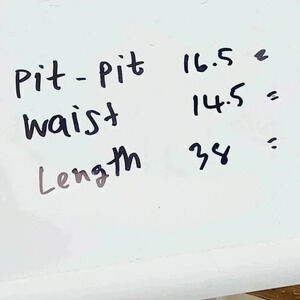 Pit - pit 16.5 "
Waist 14.5 "
Length 38 "